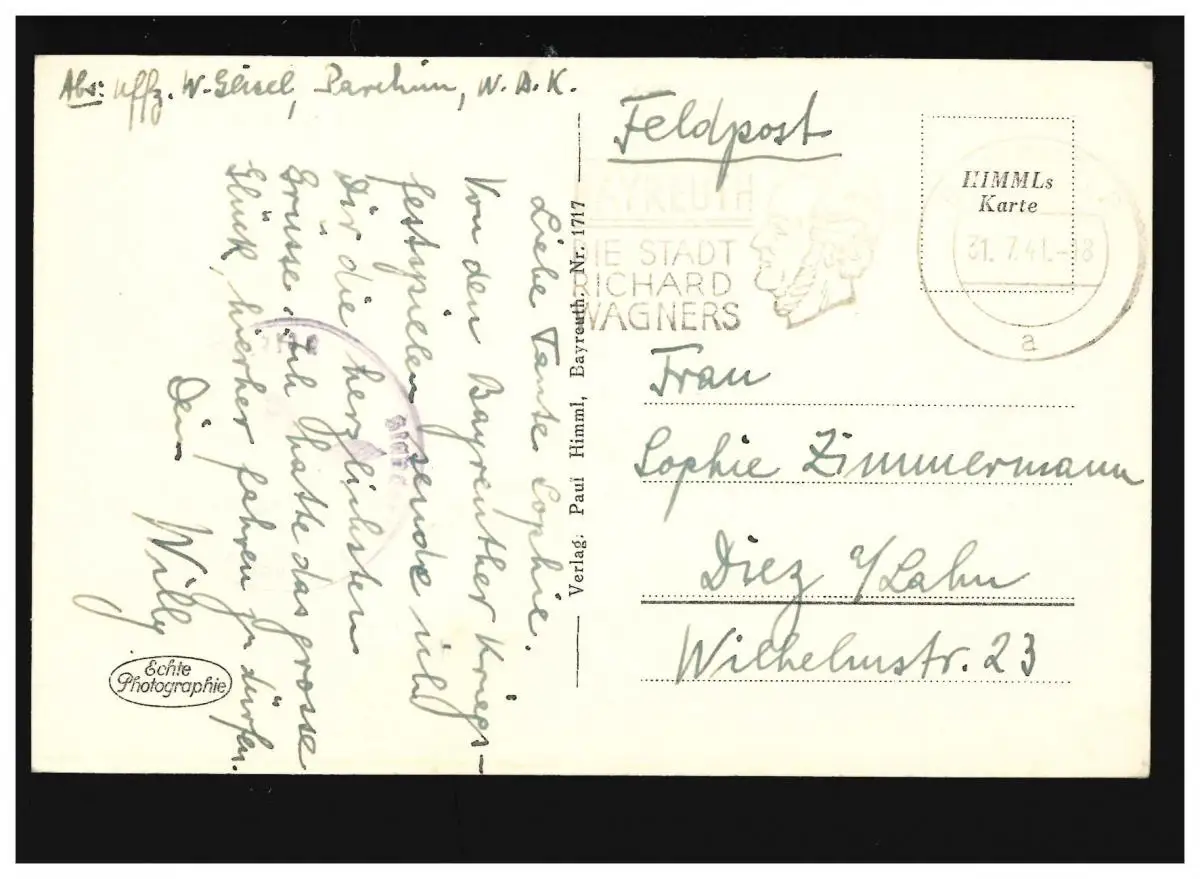 Abs: Uffz. W. Glisel, Parchim, N.A.K.
Liebe Tante Sophie.
Von den Bayreuther Kriegs-
festspielen sende ich
Dir die herzlichsten
Grüsse. Ich hatte das grosse
Glück, hierher fahren zu dürfen.
Dein
Willy
Echte
Photographie
Verlag: Paul Himml, Bayreuth. Nr. 1717
Feldpost
BAYREUTH
DIE STADT
RICHARD
WAGNERS
HIMMLs
Karte
31.7.41.-18
a
Frau
Sophie Zimmermann
Diez a/Lahn
Wilhelmstr. 23